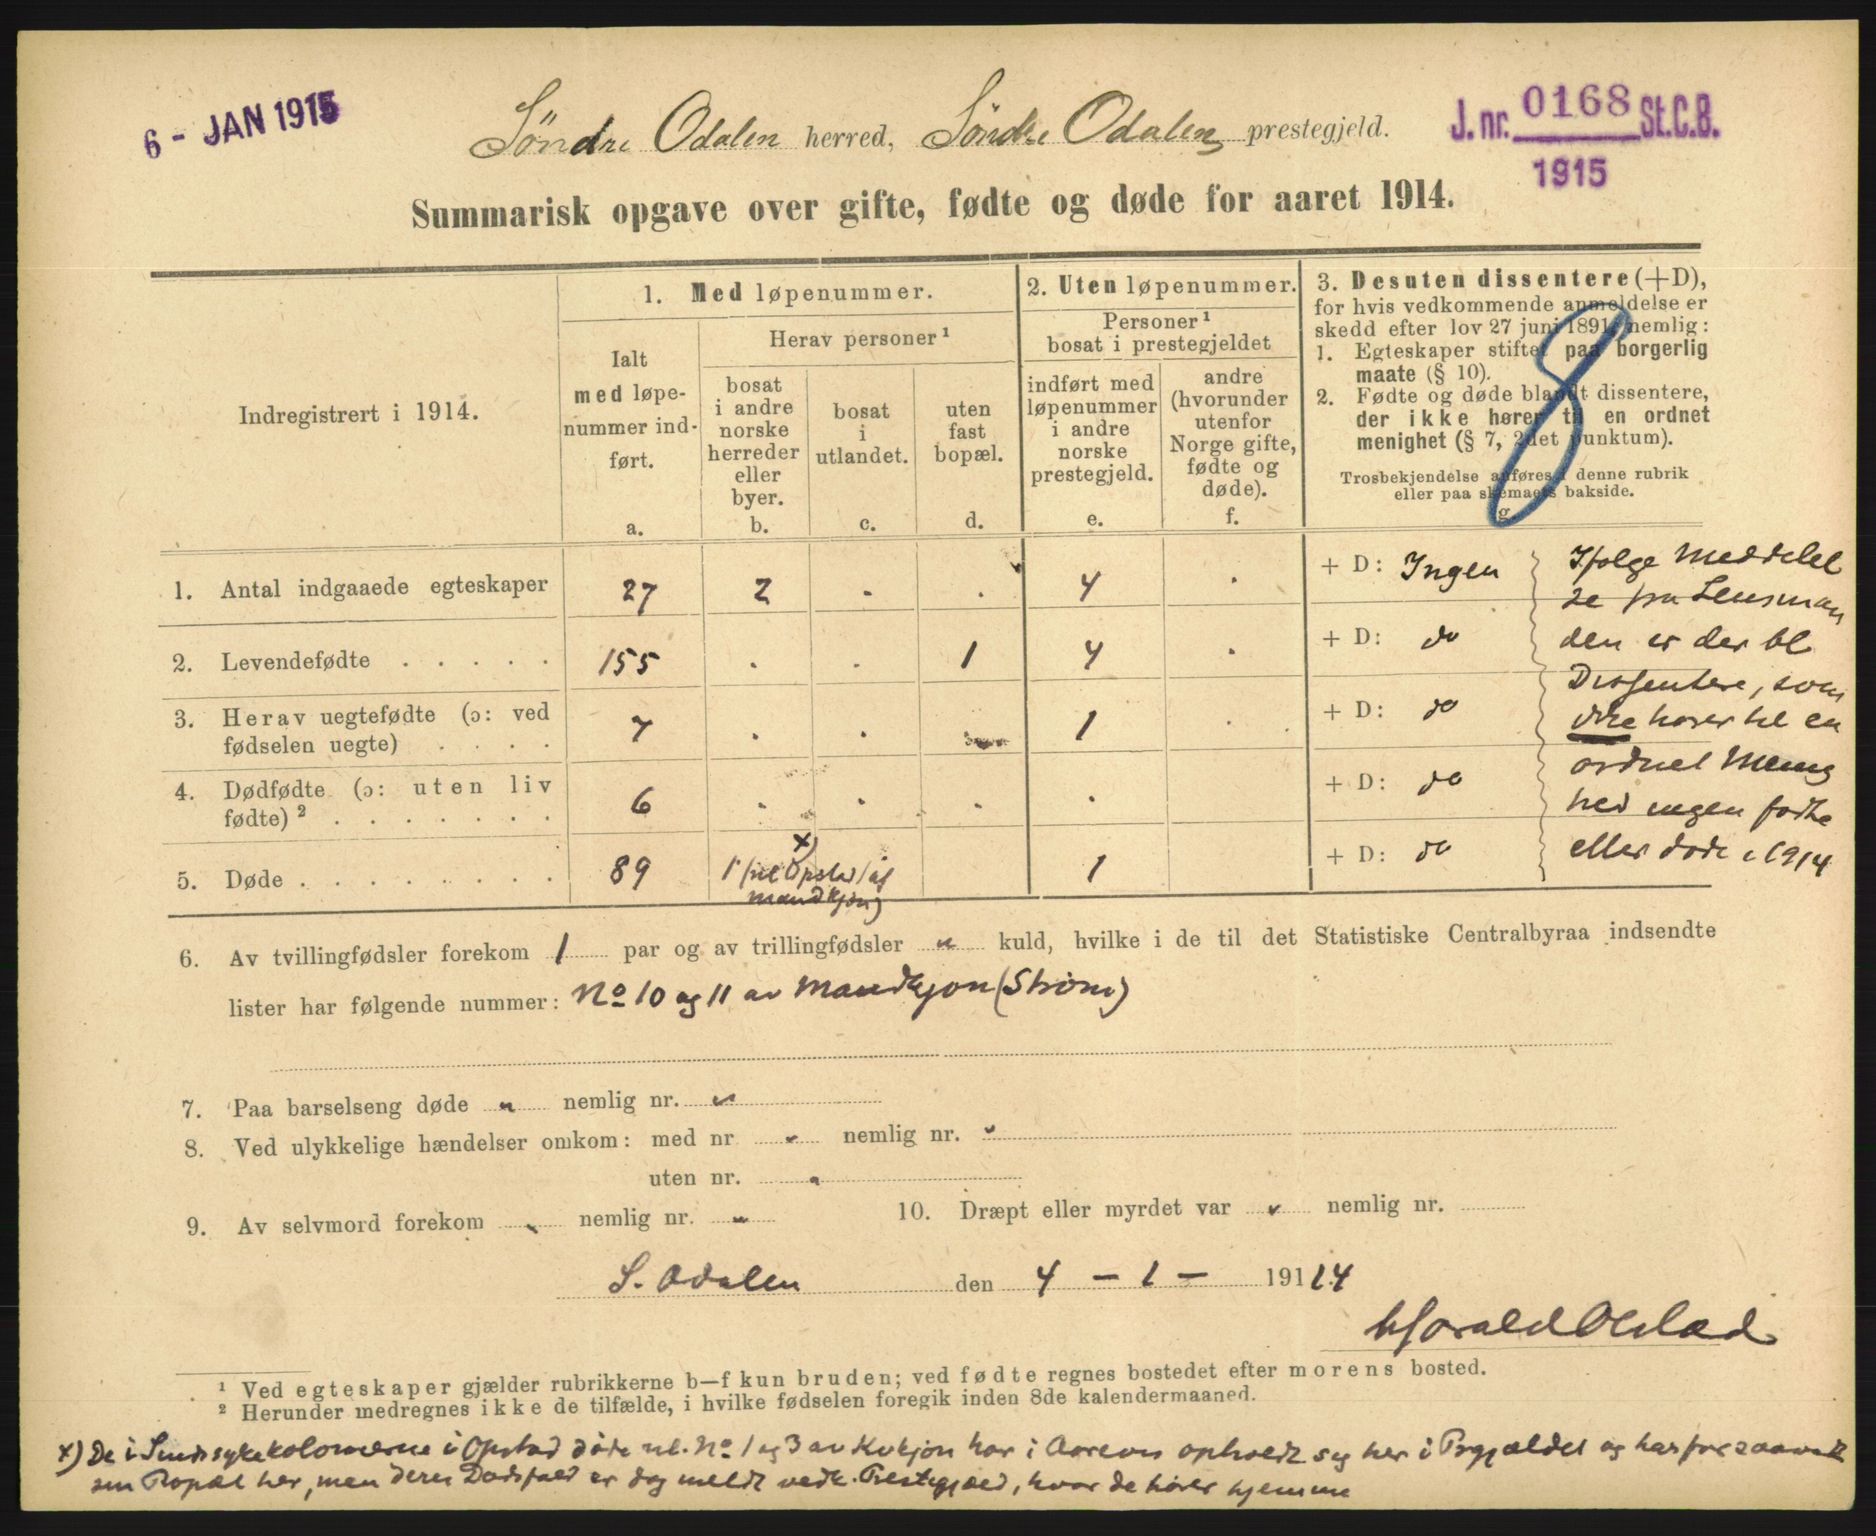 6 - JAN 1915
Søndre Odalen herred, Søndre Odalen prestegjeld.
J. nr. 0168 St.C.B.
1915
Summarisk opgave over gifte, fødte og døde for aaret 1914.
Indregistrert i 1914.
1. Med løpenummer.
Ialt
med løpe-
nummer ind-
ført.
a.
Herav personer ¹
bosat
i andre
norske
herreder
eller
byer.
b.
bosat
i
utlandet.
c.
uten
fast
bopæl.
d.
2. Uten løpenummer.
Personer ¹
bosat i prestegjeldet
indført med
løpenummer
i andre
norske
prestegjeld.
e.
andre
(hvorunder
utenfor
Norge gifte,
fødte og
døde).
f.
3. Desuten dissentere (+D),
for hvis vedkommende anmeldelse er
skedd efter lov 27 juni 1891, nemlig:
1. Egteskaper stiftet paa borgerlig
maate (§ 10).
2. Fødte og døde blandt dissentere,
der ikke hører til en ordnet
menighet (§ 7, 2det punktum).
Trosbekjendelse anføres i denne rubrik
eller paa skemaets bakside.
g.
8
1. Antal indgaaede egteskaper 27 2 . . 4 . + D: Ingen
2. Levendefødte . . . . . 155 . . 1 4 . + D: do
3. Herav uegtefødte (ɔ: ved
fødselen uegte) . . . . 7 . . 1 . + D: do
4. Dødfødte (ɔ: uten liv
fødte) ² . . . . . . . 6 . . . . + D: do
5. Døde . . . . . . . . . 89 1 x) (til Opstad) af
mandkjøn) 1 + D: do
Ifølge Meddelel
se fra Lensman
den er der bl
Dissentere, som
ikke hører til en
ordnet Menig
hed ingen fødte
eller døde i 1914
6. Av tvillingfødsler forekom 1 par og av trillingfødsler " kuld, hvilke i de til det Statistiske Centralbyraa indsendte
lister har følgende nummer: No 10 og 11 av Mandkjøn (Strøm)
7. Paa barselseng døde " nemlig nr. "
8. Ved ulykkelige hændelser omkom: med nr " nemlig nr. "
uten nr. "
9. Av selvmord forekom " nemlig nr. " 10. Dræpt eller myrdet var " nemlig nr.
S. Odalen den 4 - 1 - 191 14
¹ Ved egteskaper gjælder rubrikkerne b—f kun bruden; ved fødte regnes bostedet efter morens bosted.
² Herunder medregnes ikke de tilfælde, i hvilke fødselen foregik inden 8de kalendermaaned.
x) De i Sindssykekolonierne i Opstad døde nl. No 1 og 3 av Kvkjøn har i Aarevis opholdt sig her i Prgjældet og har forsaavidt
sin Bopæl her, men deres Dødsfald er dog meldt vedk. Prestegjæld, hvor de hører hjemme